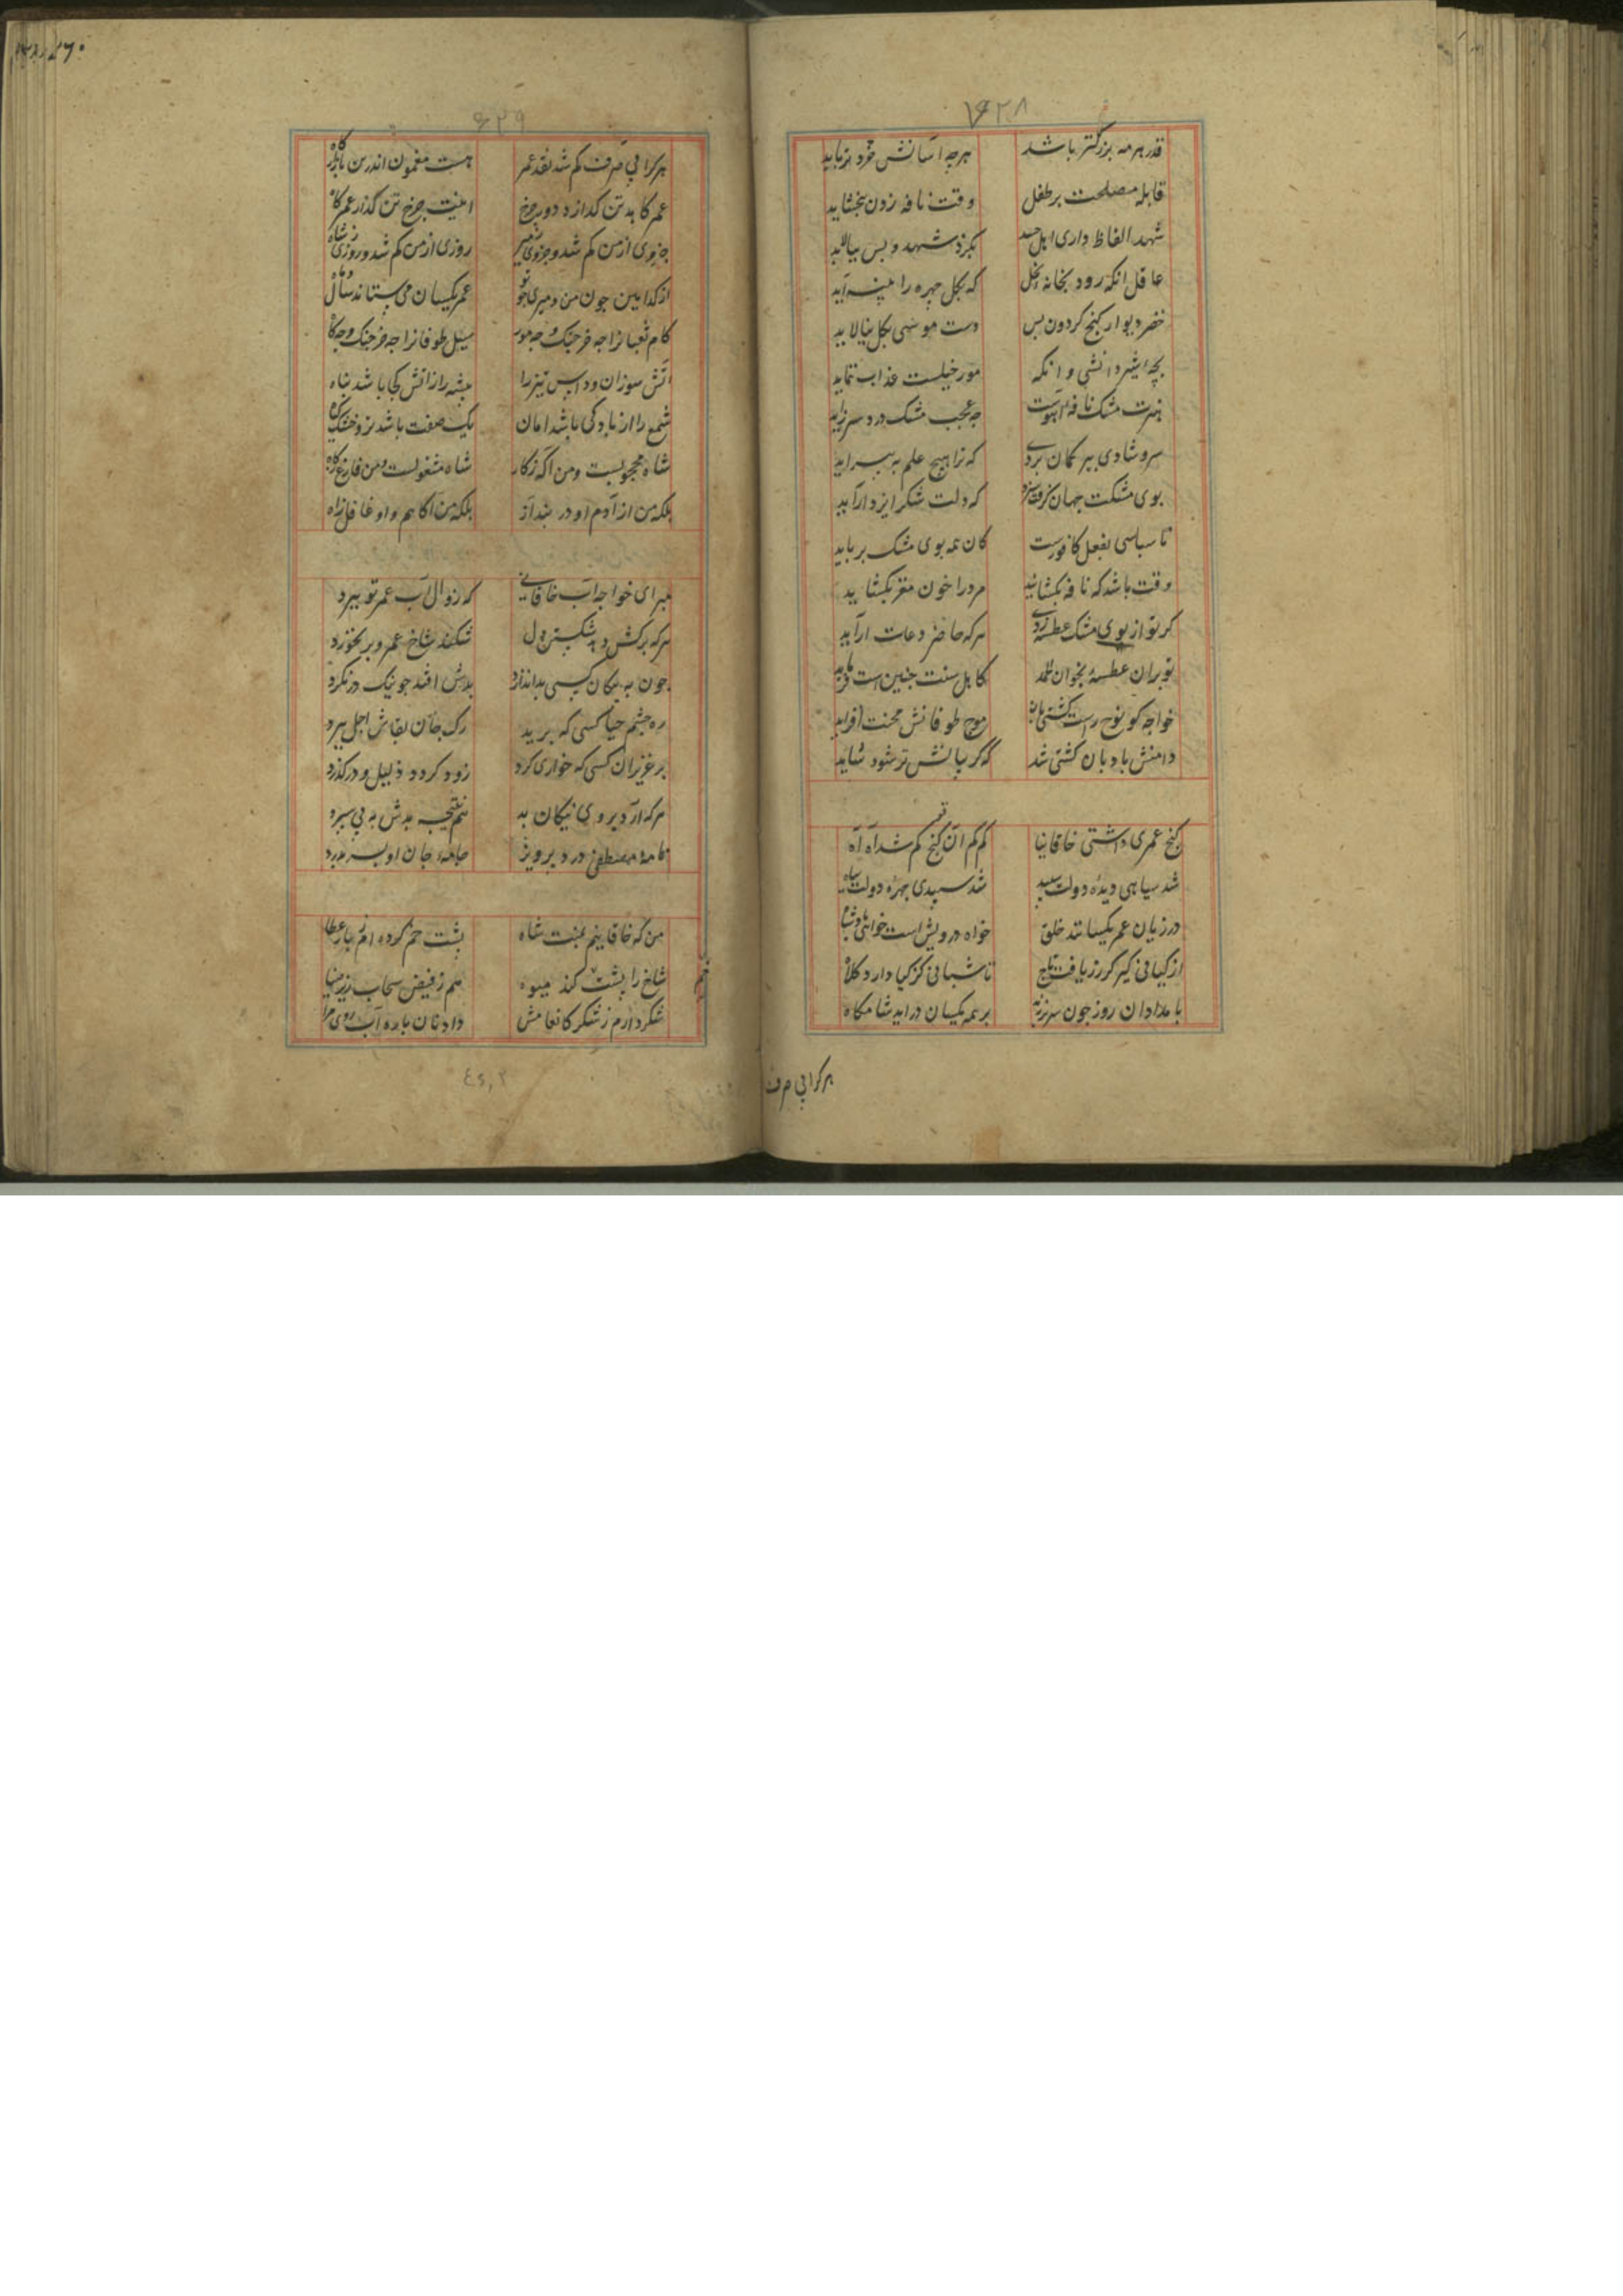 ۶۲۸
قدر هر مه بزرگتر باشد هرچه آسانش خرد
قابله مصلحت بر طفل وقت نافه زدن بخشاید
شهد الفاظ داری اهل حسد بگزد شهد و پس بیالاید
عاقل انکه رود بخانه نحل که بگل چهره را
خضر دیوار گنج کردون بس دست موسی بگل بیالاید
بچه دانشی و انکه مور خیلست عذاب نماید
مشک نافه آهوست چه عجب مشک درد سر زاید
سر و شادی بر کمان بردی که ترا هیچ علم
بوی مشکت جهان گرفت سزد که دلت شکر ایزد آراید
ناسپاسی بفعل کافورست کان همه بوی مشک برباید
وقت باشد که نافه بکشایند مرد را خون مغز بکشاید
کر تو از بوی مشک عطسه زدی هر که حاضر دعات آراید
تو بران عطسه بخوان الحمد کاهل سنت چنین است
خواجه کو نوح راست کشتی بان موج طوفانش محنت افزاید
دامنش بادبان کشتی شد که گریبانش تر شود شاید
گنج عمری داشتی خاقانیا کم کم آن گنج کم شد آه آه
شد سیاهی دیده دولت سپید شد سپیدی چهره دولت سیاه
در زیان عمر یکسانند خلق خواه درویش است خواهی پادشاه
از کیانی گیر کز زر یافت تاج تا شبانی کز گیا دارد کلاه
بامدادان روز چون سر زند بر همه یکسان در آید شامگاه
هر کرا بی صرف
۶۲۹
هر کرا بی صرف کم شد نقد عمر هست مغموم اندرین بازارگاه
عمر کاهد تن گدازد دور چرخ اینت چرخ تن گداز عمر کاه
جزوی از من کم شد و جزوی ز میر روزی از من کم شد و روزی ز شاه
از گدایی چون من و میری چو تو عمر یکسان می ستاند سال و ماه
کام ثعبانرا چه خرچنگ و چه مور سیل طوفانرا چه خرچنگ و چه کاه
آتش سوزان و داس تیز را بیشه را ز آتش کجا باشد پناه
شمع را از باد کی باشد امان یک صفت باشد تر و خشک گیاه
شاه محجوبست و من آگه ز کار شاه مشغولست و من فارغ ز گاه
بلکه من از آدم او در بند آز بلکه من آگاهم و او غافل ز راه
مبر ای خواجه آب خاقانی که زوال آب عمر تو ببرد
هر که برکشد و بد شکستن دل شکند شاخ عمر و بر نخورد
چون به نیکان کسی بد اندازد بدش افتد چو نیک در نگرد
ره چشم حیا کسی که برید رگ جان بقاش اجل ببرد
بر عزیزان کسی که خواری کرد زود گردد ذلیل و در گذرد
هر که آرد بروی نیکان بد هم نتیجه بدش به پی سپرد
نامه مصطفی درد پرویز جامه جان او پسر بدرد
من که خاقانیم بمنت شاه پشت خم کرده ام ز بار عطا
شاخ را پشت خم کند میوه هم ز فیض سحاب زر میا
شکر دارم ز شکر کانعامش داد نان باره آب روی مرا